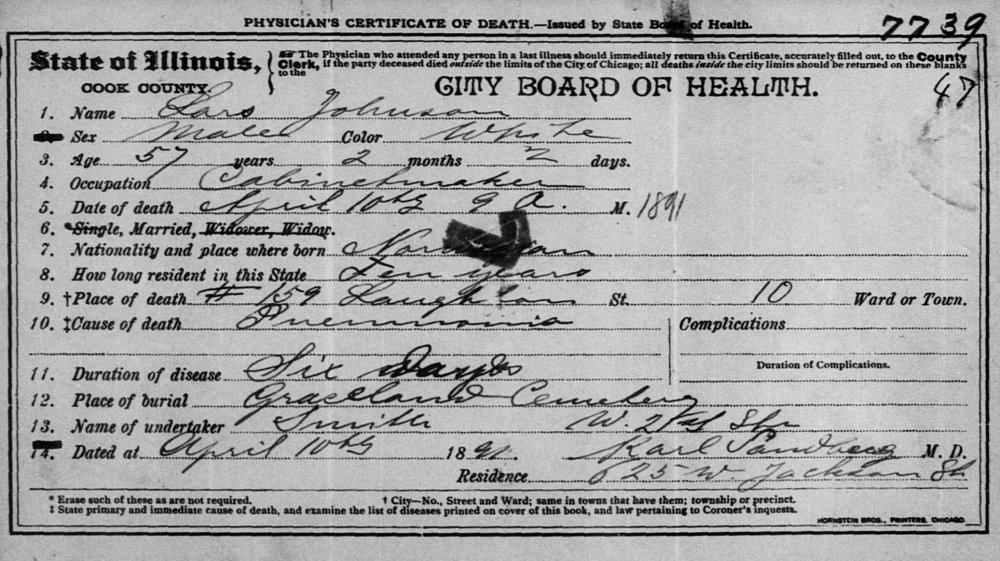 PHYSICIAN'S CERTIFICATE OF DEATH.—Issued by State Board of Health.
7739
State of Illinois,
COOK COUNTY.
The Physician who attended any person in a last illness should immediately return this Certificate, accurately filled out, to the County
Clerk, if the party deceased died outside the limits of the City of Chicago; all deaths inside the city limits should be returned on these blanks
to the
CITY BOARD OF HEALTH.
47
1. Name Lars Johnson
Sex Male Color White
3. Age 57 years 2 months 2 days.
4. Occupation Cabinetmaker
5. Date of death April 10th 9 A. M. 1891
6. *Single, Married, Widower, Widow.
7. Nationality and place where born
8. How long resident in this State Ten years
9. †Place of death # 159 St. 10 Ward or Town.
10. ‡Cause of death Pneumonia Complications
11. Duration of disease Six days Duration of Complications.
12. Place of burial Graceland Cemetery
13. Name of undertaker Smith W. 21st Str
14. Dated at April 10th 1891. Karl Sandberg M. D.
Residence 625 W. Jackson St
* Erase such of these as are not required. † City—No., Street and Ward; same in towns that have them; township or precinct.
‡ State primary and immediate cause of death, and examine the list of diseases printed on cover of this book, and law pertaining to Coroner's inquests.
HORNSTEIN BROS., PRINTERS, CHICAGO.